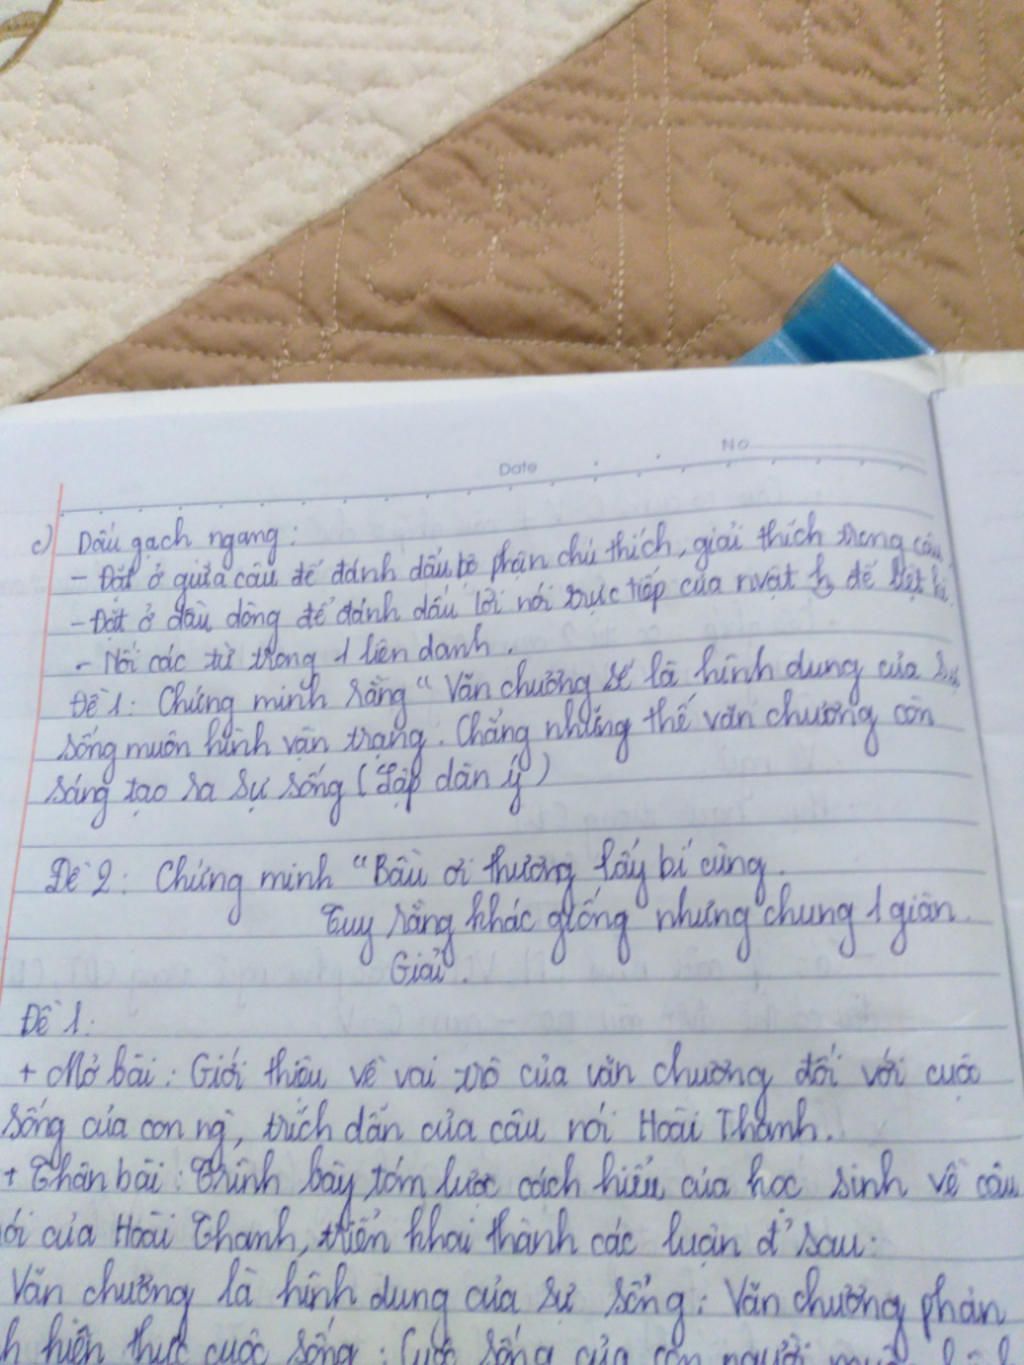 Date No
c) Dấu gạch ngang:
- Đặt ở giữa câu để đánh dấu bộ phận chú thích, giải thích trong câu
- Đặt ở đầu dòng để đánh dấu lời nói trực tiếp của nvật để liệt kê
- Nối các từ trong 1 liên danh.
Đề 1: Chứng minh rằng "Văn chương sẽ là hình dung của sự
sống muôn hình vạn trạng. Chẳng những thế văn chương còn
sáng tạo ra sự sống (Lập dàn ý)
Đề 2: Chứng minh "Bầu ơi thương lấy bí cùng.
Tuy rằng khác giống nhưng chung 1 giàn.
Giải.
Đề 1:
+ Mở bài: Giới thiệu về vai trò của văn chương đối với cuộc
sống của con ng', trích dẫn của câu nói Hoài Thanh.
+ Thân bài: Trình bày tóm lược cách hiểu của học sinh về câu
nói của Hoài Thanh, triển khai thành các luận đ' sau:
Văn chương là hình dung của sự sống: Văn chương phản
hiện thực cuộc sống: Cuộc sống của con người